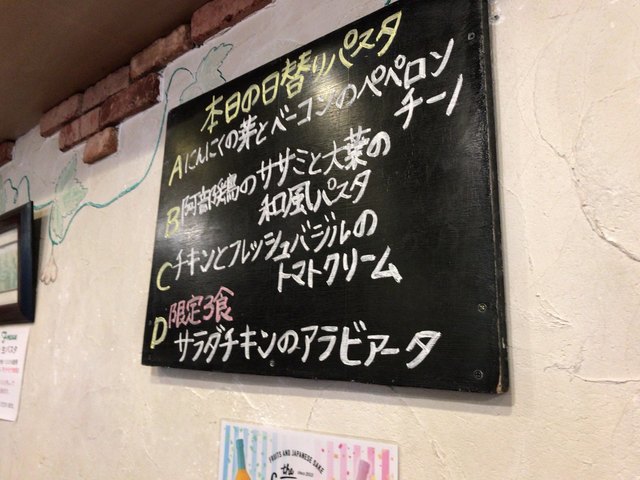 本日の日替りパスタ
A にんにくの芽とベーコンのペペロン
チーノ
B 阿部鶏のササミと大葉の
和風パスタ
C チキンとフレッシュバジルの
トマトクリーム
限定3食
D サラダチキンのアラビアータ
生パスタ
FRUITS AND JAPANESE SAKE
the